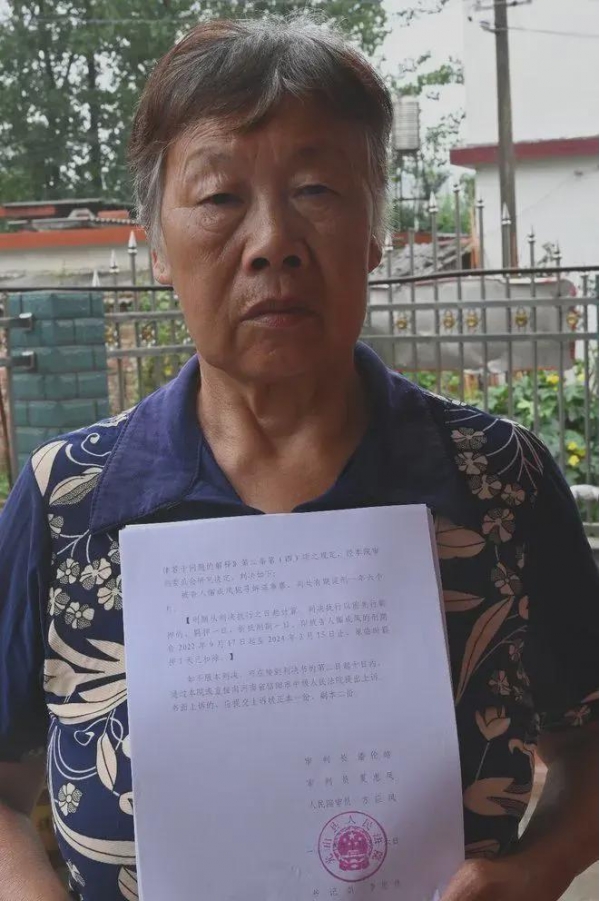 律若干问题的解释》第二条第(四)项之规定,经本院审
判委员会研究决定,判决如下:
被告人 犯寻衅滋事罪,判处有期徒刑一年六个
月。
【刑期从判决执行之日起计算。判决执行以前先行羁
押的,羁押一日,折抵刑期一日。即被告人 的刑期
自2022年9月17日起至2024年3月15日止,
押1天已扣除。】
如不服本判决,可在接到判决书的第二日起十日内,
通过本院或直接向河南省信阳市中级人民法院提出上诉。
书面上诉的,应提交上诉状正本一份,副本二份。
审 判 长
审 判 员
人民陪审员
罗山县人民法院
日
书 记 员